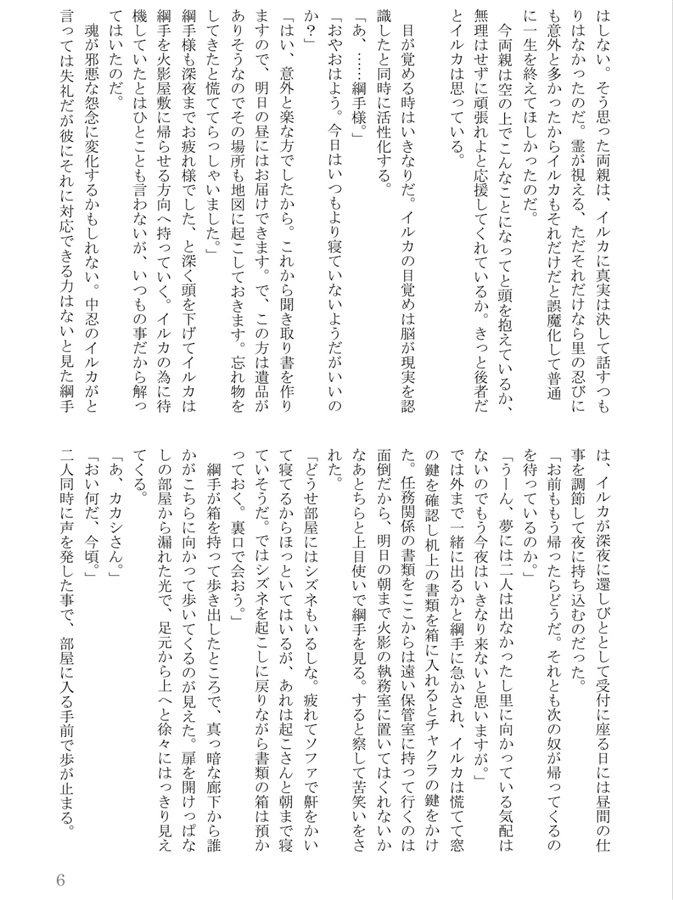 はしない。そう思った両親は、イルカに真実は決して話すつも
りはなかったのだ。霊が視える、ただそれだけなら里の忍びに
も意外と多かったからイルカもそれだけだと誤魔化して普通
に一生を終えてほしかったのだ。
今両親は空の上でこんなことになってと頭を抱えているか、
無理はせずに頑張れよと応援してくれているか。きっと後者だ
とイルカは思っている。
目が覚める時はいきなりだ。イルカの目覚めは脳が現実を認
識したと同時に活性化する。
「あ、……綱手様。」
「おやおはよう。今日はいつもより寝ていないようだがいいの
か？」
「はい、意外と楽な方でしたから。これから聞き取り書を作り
ますので、明日の昼にはお届けできます。で、この方は遺品が
ありそうなのでその場所も地図に起こしておきます。忘れ物を
してきたと慌ててらっしゃいました。」
綱手様も深夜までお疲れ様でした、と深く頭を下げてイルカは
綱手を火影屋敷に帰らせる方向へ持っていく。イルカの為に待
機していたとはひとことも言わないが、いつもの事だから解っ
てはいたのだ。
魂が邪悪な怨念に変化するかもしれない。中忍のイルカがと
言っては失礼だが彼にそれに対応できる力はないと見た綱手
は、イルカが深夜に還しびととして受付に座る日には昼間の仕
事を調節して夜に持ち込むのだった。
「お前ももう帰ったらどうだ。それとも次の奴が帰ってくるの
を待っているのか。」
「うーん、夢には二人は出なかったし里に向かっている気配は
ないのでもう今夜はいきなり来ないと思いますが。」
では外まで一緒に出るかと綱手に急かされ、イルカは慌てて窓
の鍵を確認し机上の書類を箱に入れるとチャクラの鍵をかけ
た。任務関係の書類をここからは遠い保管室に持って行くのは
面倒だから、明日の朝まで火影の執務室に置いてはくれないか
なあとちらと上目使いで綱手を見る。すると察して苦笑いをさ
れた。
「どうせ部屋にはシズネもいるしな。疲れてソファで鼾をかい
て寝てるからほっといてはいるが、あれは起こさんと朝まで寝
ていそうだ。ではシズネを起こしに戻りながら書類の箱は預か
っておく。裏口で会おう。」
綱手が箱を持って歩き出したところで、真っ暗な廊下から誰
かがこちらに向かって歩いてくるのが見えた。扉を開けっぱな
しの部屋から漏れた光で、足元から上へと徐々にはっきり見え
てくる。
「あ、カカシさん。」
「おい何だ、今頃。」
二人同時に声を発した事で、部屋に入る手前で歩が止まる。
6